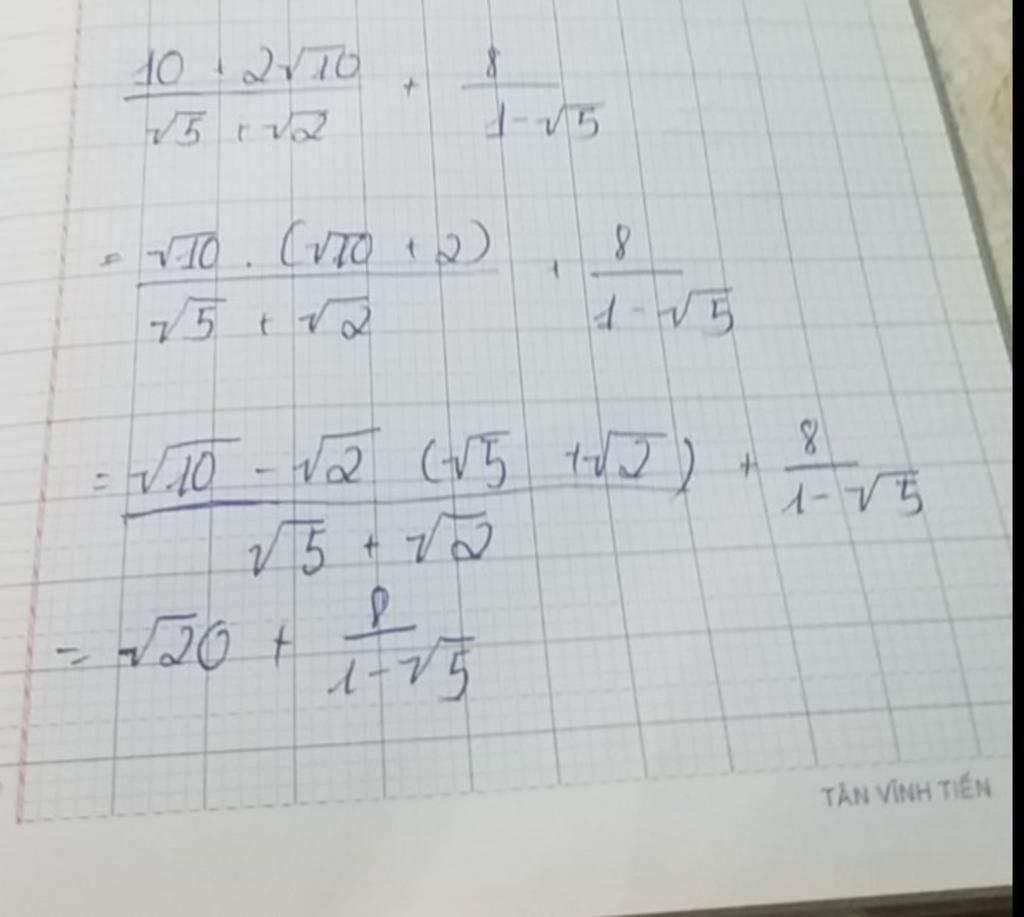 \frac{10 + 2\sqrt{10}}{\sqrt{5} + \sqrt{2}} + \frac{8}{1 - \sqrt{5}}
= \frac{\sqrt{10} . (\sqrt{10} + 2)}{\sqrt{5} + \sqrt{2}} + \frac{8}{1 - \sqrt{5}}
= \frac{\sqrt{10} - \sqrt{2} (\sqrt{5} + \sqrt{2})}{\sqrt{5} + \sqrt{2}} + \frac{8}{1 - \sqrt{5}}
= \sqrt{20} + \frac{8}{1 - \sqrt{5}}
TÂN VĨNH TIẾN